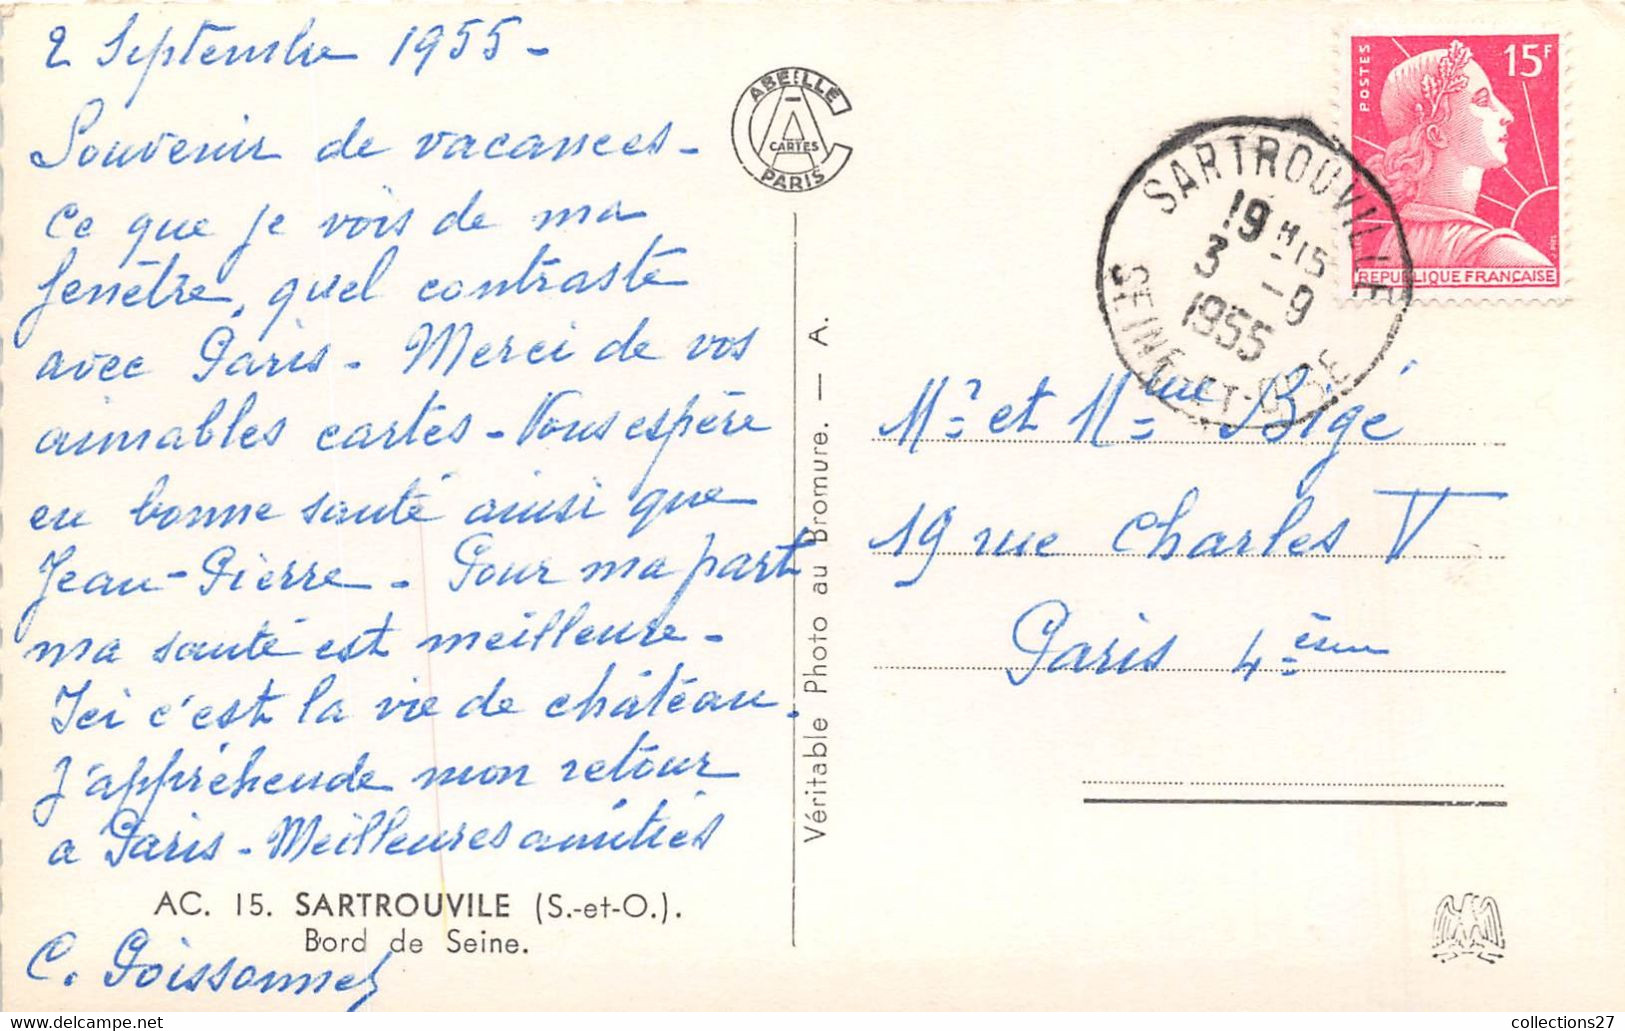 2 Septembre 1955 -
Souvenir de vacances -
Ce que je vois de ma
fenêtre, quel contraste
avec Paris - Merci de vos
aimables cartes - Vous espère
en bonne santé ainsi que
Jean-Pierre - Pour ma part
ma santé est meilleure -
Ici c'est la vie de château.
J'appréhende mon retour
a Paris - Meilleures amitiés
AC. 15. SARTROUVILE (S.-et-O.).
Bord de Seine.
C. Poissonnel
ABEILLE
CARTES
PARIS
Véritable Photo au Bromure. — A.
POSTES
15F
REPUBLIQUE FRANÇAISE
SARTROUVILLE
19 H 15
3 - 9
1955
SEINE-ET-OISE
Mr et Mme Bigé
19 rue Charles V
Paris 4ème
collections27